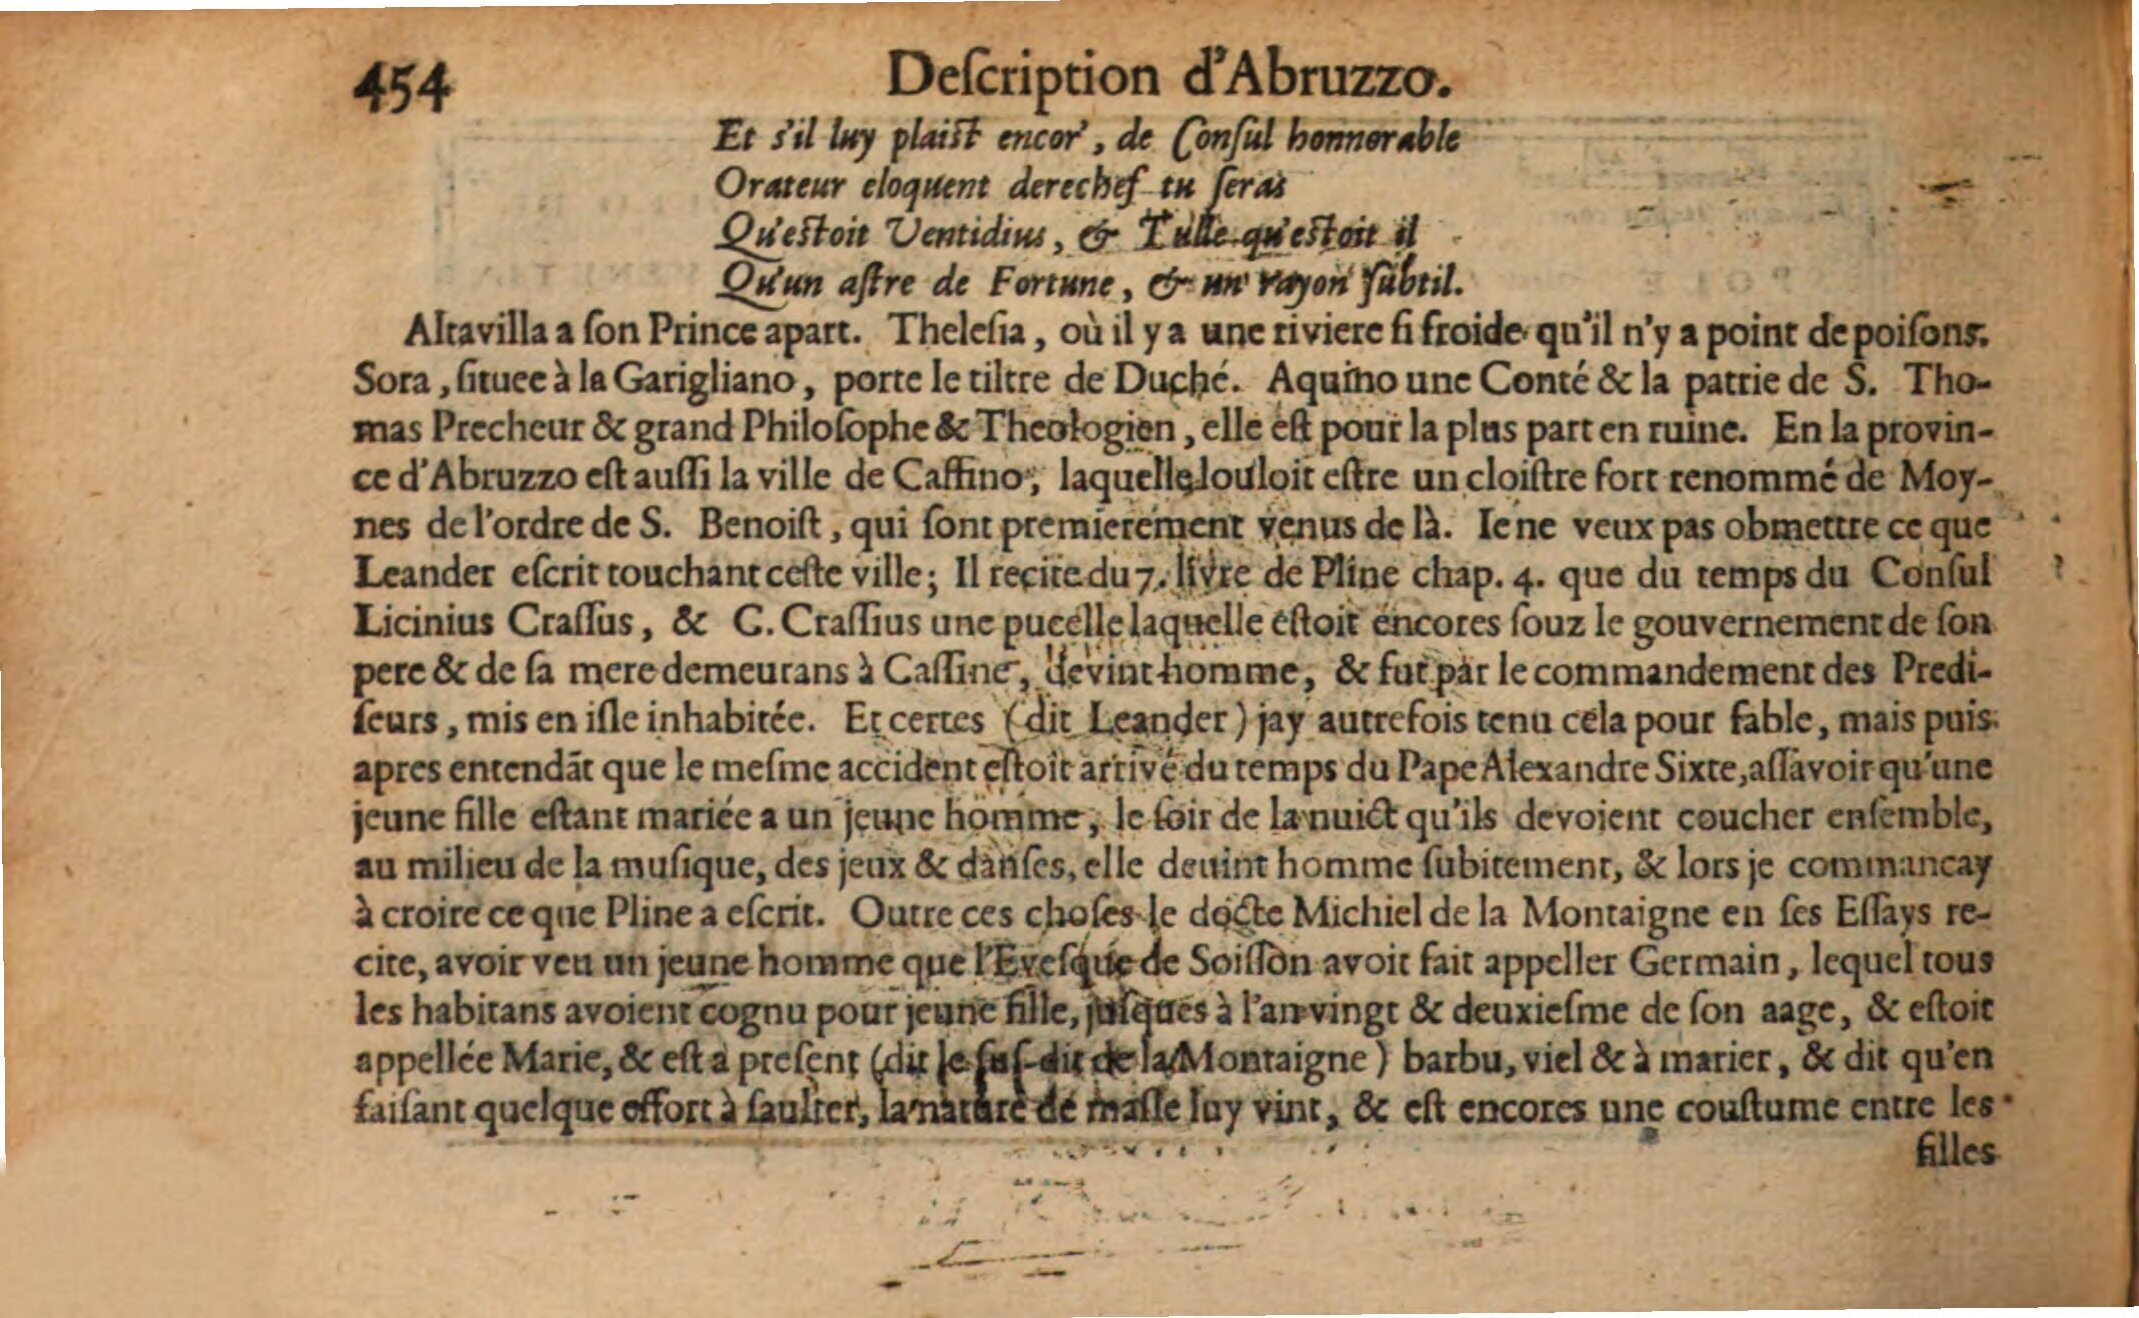 454 Deſcription d'Abruzzo.
Et s'il luy plaiſt encor', de Conſul honnorable
Orateur eloquent derechef tu ſeras
Qu'eſtoit Ventidius, & Tulle qu'eſtoit il
Qu'un aſtre de Fortune, & un rayon ſubtil.
Altavilla a ſon Prince apart. Theleſia, où il y a une riviere ſi froide qu'il n'y a point de poiſons.
Sora, ſituee à la Garigliano, porte le tiltre de Duché. Aquino une Conté & la patrie de S. Tho-
mas Precheur & grand Philoſophe & Theologien, elle eſt pour la plus part en ruine. En la provin-
ce d'Abruzzo eſt auſſi la ville de Caſſino, laquelle ſouloit eſtre un cloiſtre fort renommé de Moy-
nes de l'ordre de S. Benoiſt, qui ſont premierement venus de là. Ie ne veux pas obmettre ce que
Leander eſcrit touchant ceſte ville; Il recite du 7. livre de Pline chap. 4. que du temps du Conſul
Licinius Craſſus, & C. Craſſius une pucelle laquelle eſtoit encores ſouz le gouvernement de ſon
pere & de ſa mere demeurans à Caſſine, devint homme, & fut par le commandement des Predi-
ſeurs, mis en iſle inhabitée. Et certes (dit Leander) jay autrefois tenu cela pour fable, mais puis
apres entendãt que le meſme accident eſtoit arrivé du temps du Pape Alexandre Sixte, aſſavoir qu'une
jeune fille eſtant mariée a un jeune homme, le ſoir de la nuict qu'ils devoient coucher enſemble,
au milieu de la muſique, des jeux & danſes, elle deuint homme ſubitement, & lors je commancay
à croire ce que Pline a eſcrit. Outre ces choſes le docte Michiel de la Montaigne en ſes Eſſays re-
cite, avoir veu un jeune homme que l'Eveſque de Soiſſon avoit fait appeller Germain, lequel tous
les habitans avoient cognu pour jeune fille, juſques à l'an vingt & deuxieſme de ſon aage, & eſtoit
appellée Marie, & eſt a preſent (dit le ſuſ-dit de la Montaigne) barbu, viel & à marier, & dit qu'en
faiſant quelque effort à ſaulter, la nature de maſle luy vint, & eſt encores une couſtume entre les
filles